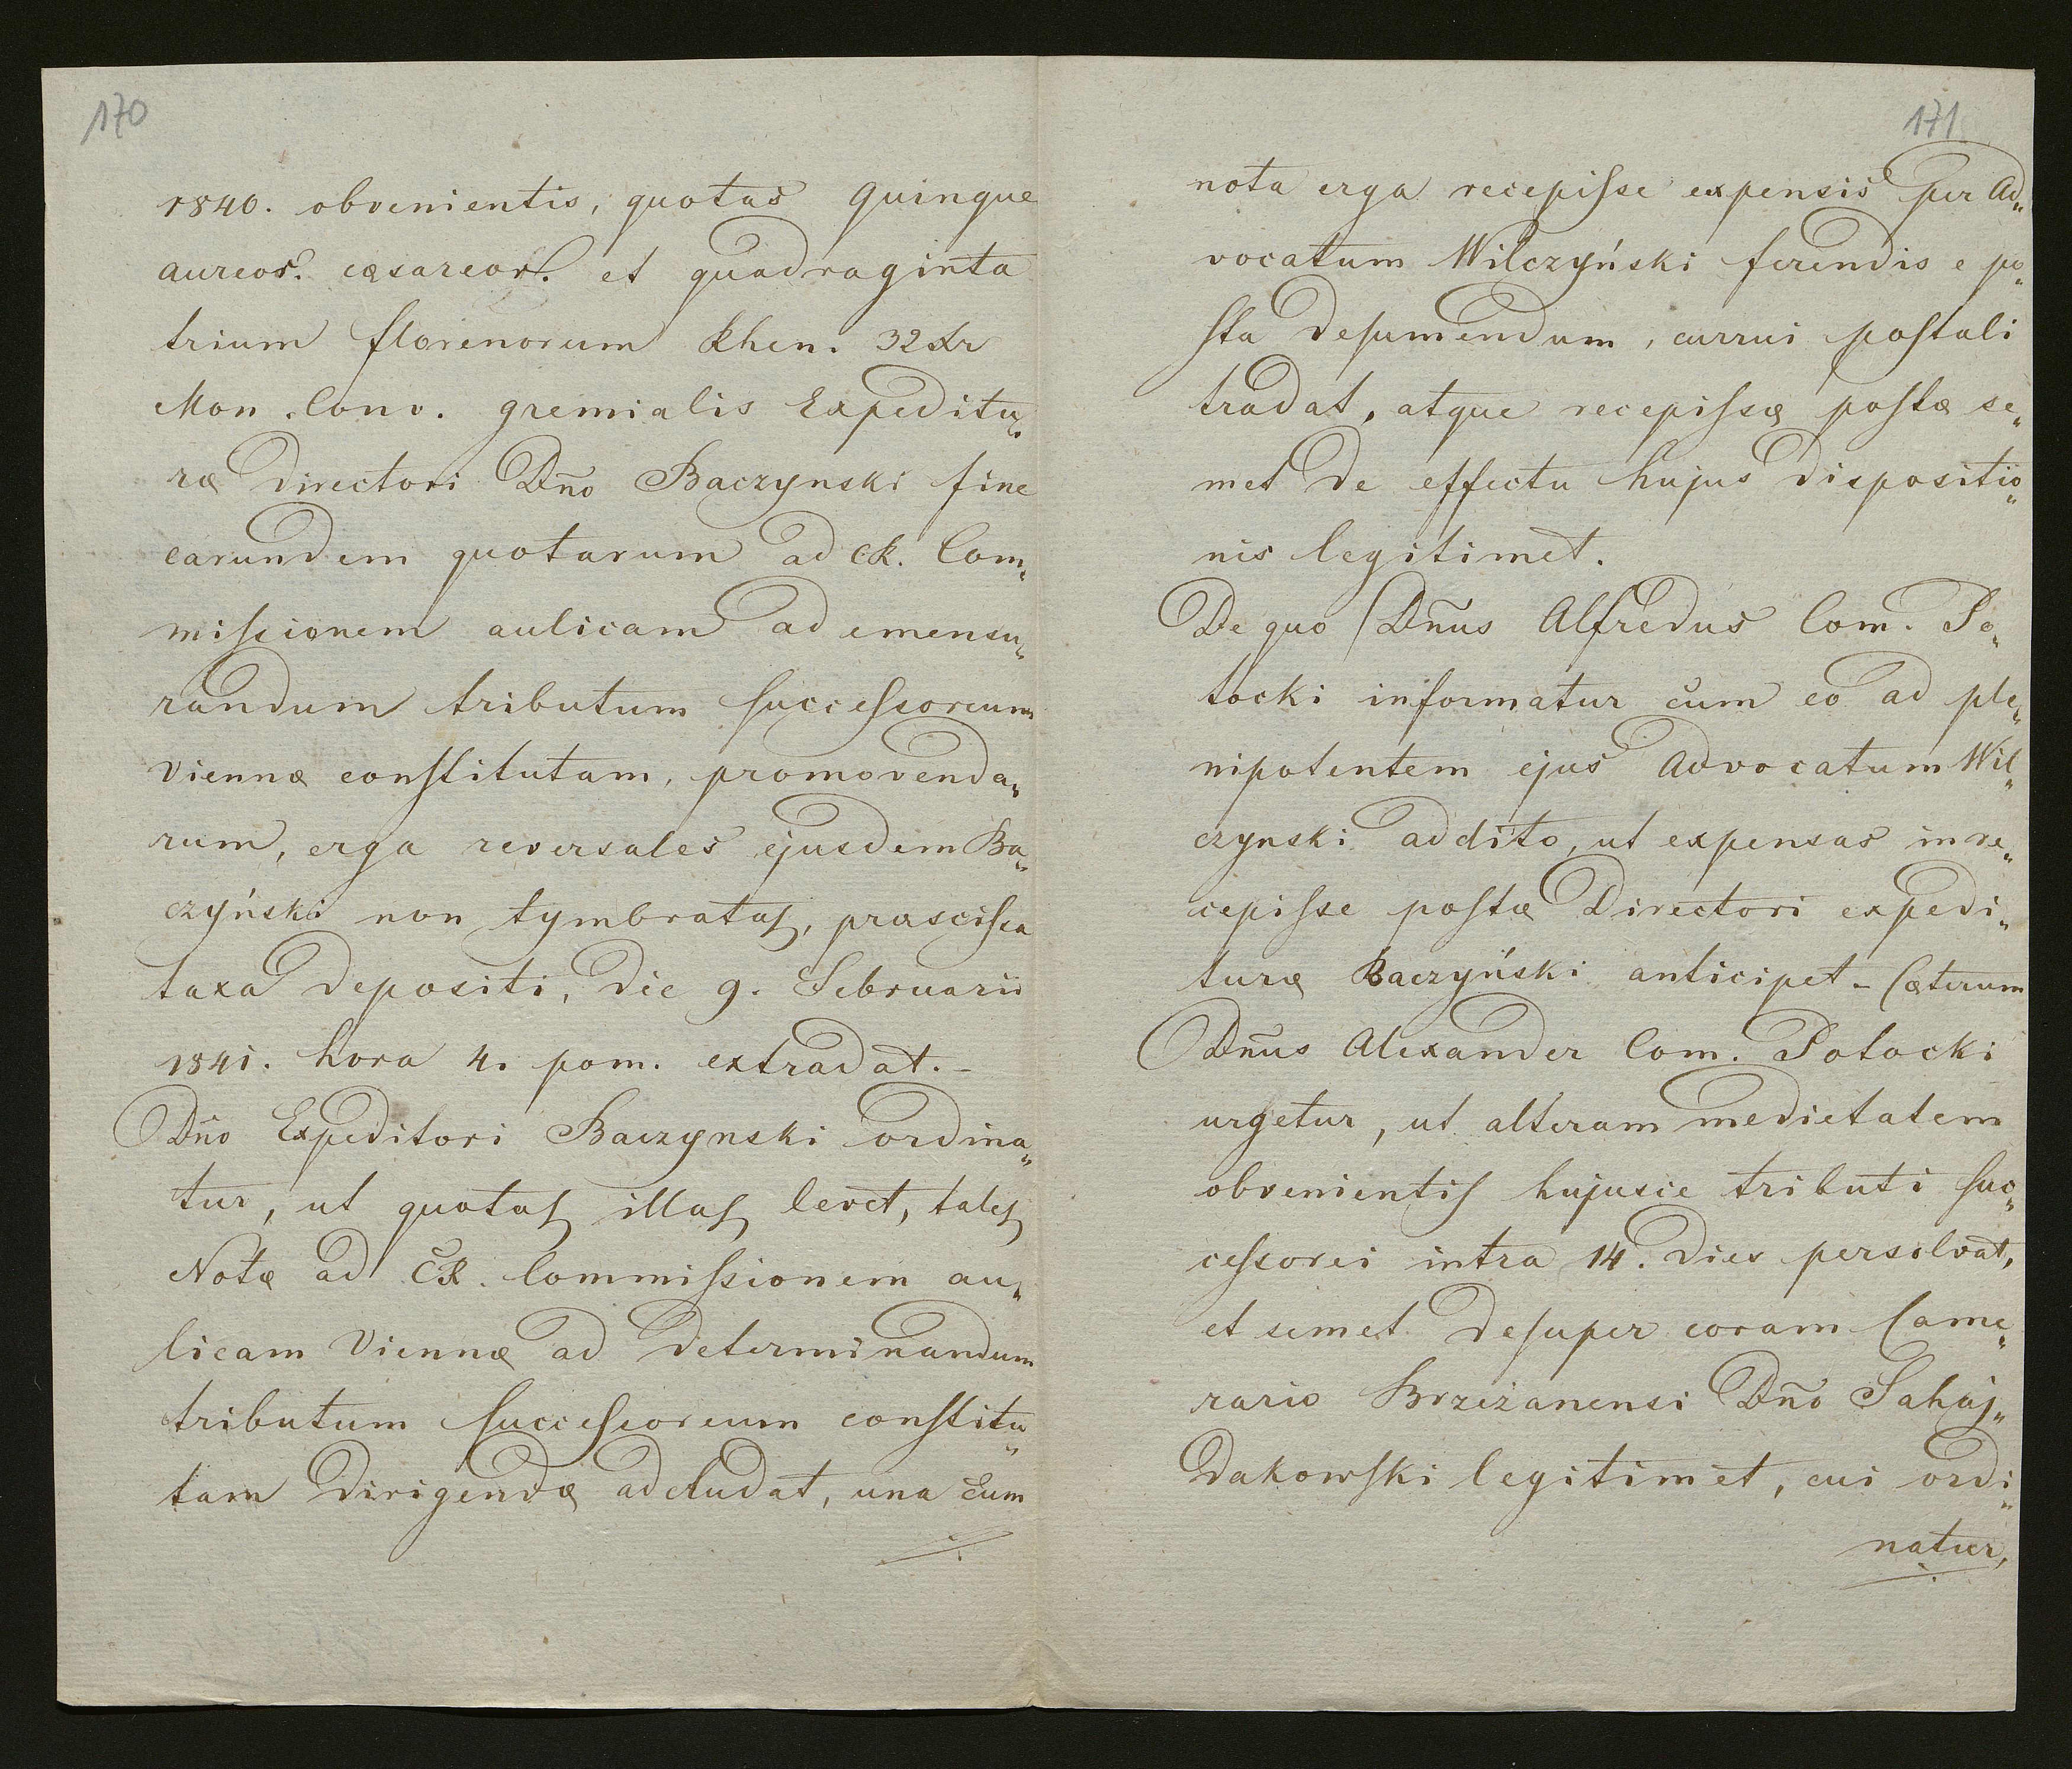 170
1840. obvenientis, quotas quinque
aureor. cæsareor. et quadraginta
trium florenorum Rhen. 32 Xr
Mon. Conv. gremialis Expeditu„
ræ Directori Dño Baczynski fine
earundem quotarum ad CR. Com„
miſsionem aulicam ad emensu„
randum tributum ſucceſsoreum
Viennæ conſtitutam, promovenda„
rum, erga reversales ejusdem Ba„
czyński non tymbratas, præsciſsa
taxa depositi, die 9. Februarii
1841. hora 4. pom. extradat. –
Dño Expeditori Baczynski ordina„
tur, ut quotas illas levet, tales
Notæ ad CR. Commiſsionem au„
licam Viennæ ad determinandum
tributum ſucceſsoreum conſtitu„
tam dirigendæ adcludat, una cum
171
nota erga recepiſse expensis per Ad„
vocatum Wilczyński ferendis e po„
ſta deſumendum, currui poſtali
tradat, atque recepiſsæ poſtæ se„
met de effectu hujus dispositio„
nis legitimet.
De quo Dñus Alfredus Com. Po„
tocki informatur cum eo ad ple„
nipotentem ejus Advocatum Wil„
czynski addito, ut expensas in re„
cepiſse poſtæ Directori expedi„
turæ Baczyński anticipet – Cæterum
Dñus Alexander Com. Potocki
urgetur, ut alteram medietatem
obvenientis hujusce tributi ſuc„
ceſsorei intra 14. dies persolvat,
et semet deſuper coram Came„
rario Brzeżanensi Dño Sahaj„
dakowſki legitimet, cui ordi„
natur,